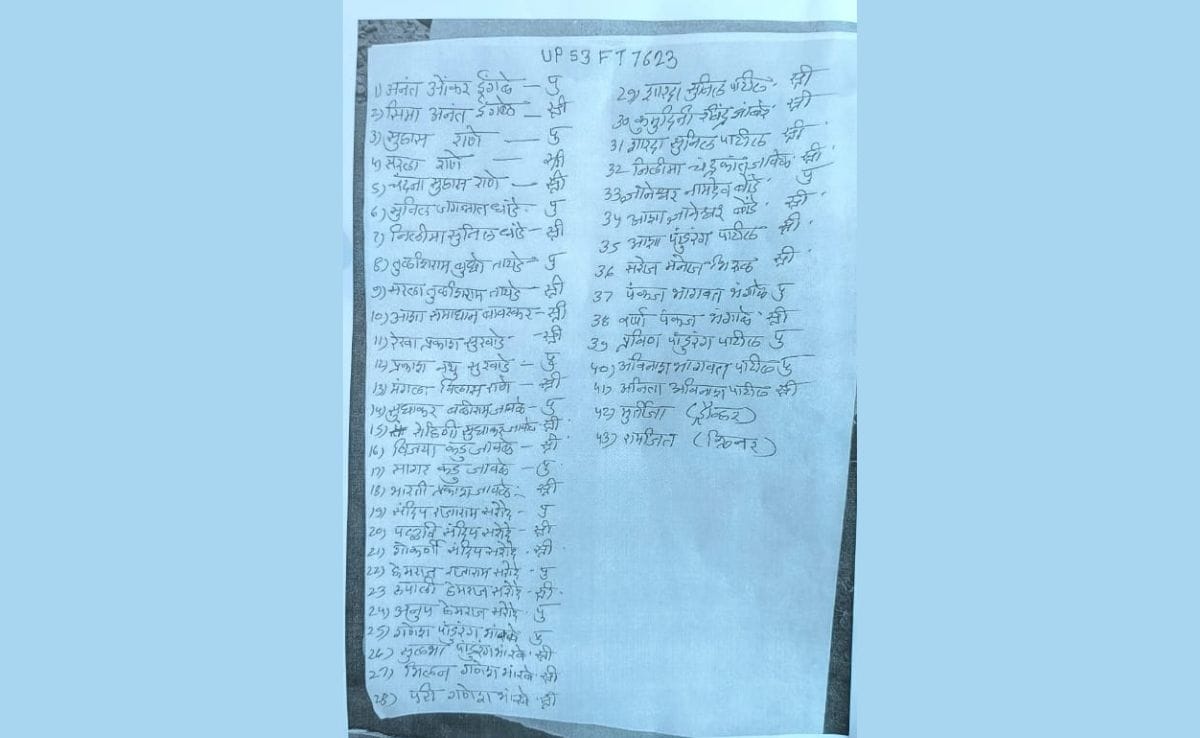 UP 53 FT 7623
1) अनंत ओंकार इंगळे – पु
2) सिमा अनंत इंगळे – स्त्री
3) सुहास राणे – पु
4) सरला राणे – स्त्री
5) चंदना सुहास राणे – स्त्री
6) सुनिल जगन्नाथ धांडे - पु
7) निलीमा सुनिल धांडे - स्त्री
8) तुळशीराम बुधो तायडे - पु
9) सरला तुळशीराम तायडे - स्त्री
10) आशा समाधान बावस्कर - स्त्री
11) रेखा प्रकाश सुरवाडे - स्त्री
12) प्रकाश नथु सुरवाडे - पु
13) मंगला विलास राणे - स्त्री
14) सुधाकर बळीराम जावळे - पु
15) रोहिणी सुधाकर जावळे स्त्री
16) विजया कडु जावळे - स्त्री
17) सागर कडु जावळे - पु
18) भारती प्रकाश जावळे - स्त्री
19) संदिप राजाराम सरोदे - पु
20) पल्लवि संदिप सरोदे - स्त्री
21) गोकर्णी संदिप सरोदे - स्त्री
22) हेमराज राजाराम सरोदे - पु
23 रुपाली हेमराज सरोदे - स्त्री
24) अनुप हेमराज सरोदे - पु
25) गणेश पांडुरंग भारंबे पु
26) सुलभा पांडुरंग भारंबे स्त्री
27) मिलन गणेश भारंबे स्त्री
28) परी गणेश भारंबे स्त्री
29) शारदा सुनिल पाटील - स्त्री
30 कुमुदिनी रविंद्र स्त्री
31 शारदा सुनिल पाटील स्त्री
32 निलीमा चंद्रकांत जावळे स्त्री
33 ज्ञानेश्वर नामदेव बोंडे पु
34 आशा ज्ञानेश्वर बोंडे स्त्री
35 आशा पांडुरंग पाटील स्त्री
36 सरोज मनोज भिरुड स्त्री
37 पंकज भागवत भंगाळे पु
38 वर्षा पंकज भंगाळे स्त्री
39 प्रविण पांडुरंग पाटील पु
40) अविनाश भागवत पाटील पु
41) अनिता अविनाश पाटील स्त्री
42) मुर्तीजा (ड्रायव्हर)
43) रामजित (क्लिनर)